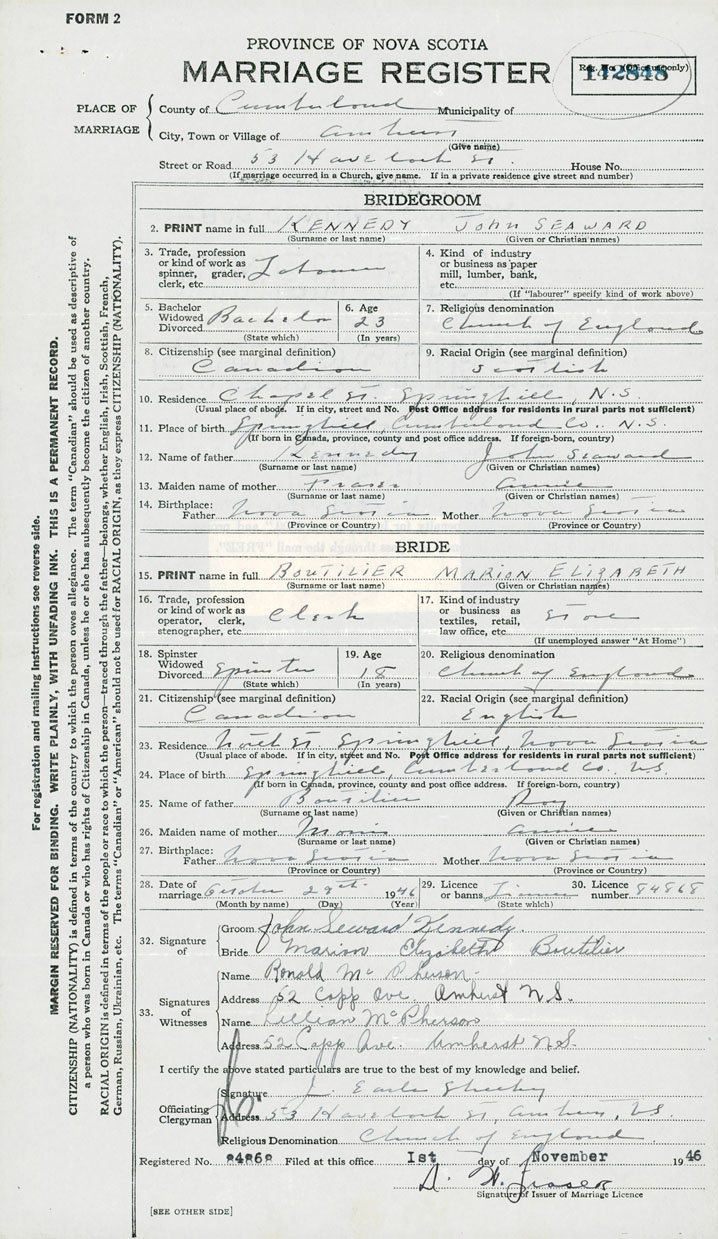 FORM 2
PROVINCE OF NOVA SCOTIA
MARRIAGE REGISTER
Reg. No. (Office use only)
142848
PLACE OF MARRIAGE
County of Cumberland Municipality of
City, Town or Village of Amherst
(Give name)
Street or Road 53 Havelock St. House No.
(If marriage occurred in a Church, give name. If in a private residence give street and number)
BRIDEGROOM
2. PRINT name in full KENNEDY JOHN SEAWARD
(Surname or last name) (Given or Christian names)
3. Trade, profession or kind of work as spinner, grader, clerk, etc. Labourer
4. Kind of industry or business as paper mill, lumber, bank, etc.
(If "labourer" specify kind of work above)
5. Bachelor Widowed Divorced Bachelor
(State which)
6. Age 23
(In years)
7. Religious denomination
Church of England
8. Citizenship (see marginal definition)
Canadian
9. Racial Origin (see marginal definition)
Scottish
10. Residence Chapel St. Springhill, N.S.
(Usual place of abode. If in city, street and No. Post Office address for residents in rural parts not sufficient)
11. Place of birth Springhill, Cumberland Co., N.S.
(If born in Canada, province, county and post office address. If foreign-born, country)
12. Name of father Kennedy John Seaward
(Surname or last name) (Given or Christian names)
13. Maiden name of mother Fraser Annie
(Surname or last name) (Given or Christian names)
14. Birthplace: Father Nova Scotia Mother Nova Scotia
(Province or Country) (Province or Country)
BRIDE
15. PRINT name in full BOUTILIER MARION ELIZABETH
(Surname or last name) (Given or Christian names)
16. Trade, profession or kind of work as operator, clerk, stenographer, etc. Clerk
17. Kind of industry or business as textiles, retail, law office, etc. Store
(If unemployed answer "At Home")
18. Spinster Widowed Divorced Spinster
(State which)
19. Age 18
(In years)
20. Religious denomination
Church of England
21. Citizenship (see marginal definition)
Canadian
22. Racial Origin (see marginal definition)
English
23. Residence St Springhill, Nova Scotia
(Usual place of abode. If in city, street and No. Post Office address for residents in rural parts not sufficient)
24. Place of birth Springhill, Cumberland Co. N.S.
(If born in Canada, province, county and post office address. If foreign-born, country)
25. Name of father Boutilier Roy
(Surname or last name) (Given or Christian names)
26. Maiden name of mother Annie
(Surname or last name) (Given or Christian names)
27. Birthplace: Father Nova Scotia Mother Nova Scotia
(Province or Country) (Province or Country)
28. Date of marriage October 29th 1946
(Month by name) (Day) (Year)
29. Licence or banns
(State which)
30. Licence number 84868
32. Signature of
Groom John Seward Kennedy
Bride Marion Elizabeth Boutilier
33. Signatures of Witnesses
Name Ronald McPherson
Address 52 Copp Ave. Amherst N.S.
Name Lillian McPherson
Address 52 Copp Ave. Amherst N.S.
I certify the above stated particulars are true to the best of my knowledge and belief.
Officiating Clergyman
Signature J. Earle
Address 53 Havelock St, Amherst, NS
Religious Denomination Church of England
Registered No. 84868 Filed at this office 1st day of November 1946
D. W. Fraser
Signature of Issuer of Marriage Licence
[SEE OTHER SIDE]
For registration and mailing instructions see reverse side.
MARGIN RESERVED FOR BINDING. WRITE PLAINLY, WITH UNFADING INK. THIS IS A PERMANENT RECORD.
CITIZENSHIP (NATIONALITY) is defined in terms of the country to which the person owes allegiance. The term "Canadian" should be used as descriptive of
a person who was born in Canada or who has rights of Citizenship in Canada, unless he or she has subsequently become the citizen of another country.
RACIAL ORIGIN is defined in terms of the people or race to which the person—traced through the father—belongs, whether English, Irish, Scottish, French,
German, Russian, Ukrainian, etc. The terms "Canadian" or "American" should not be used for RACIAL ORIGIN, as they express CITIZENSHIP (NATIONALITY).